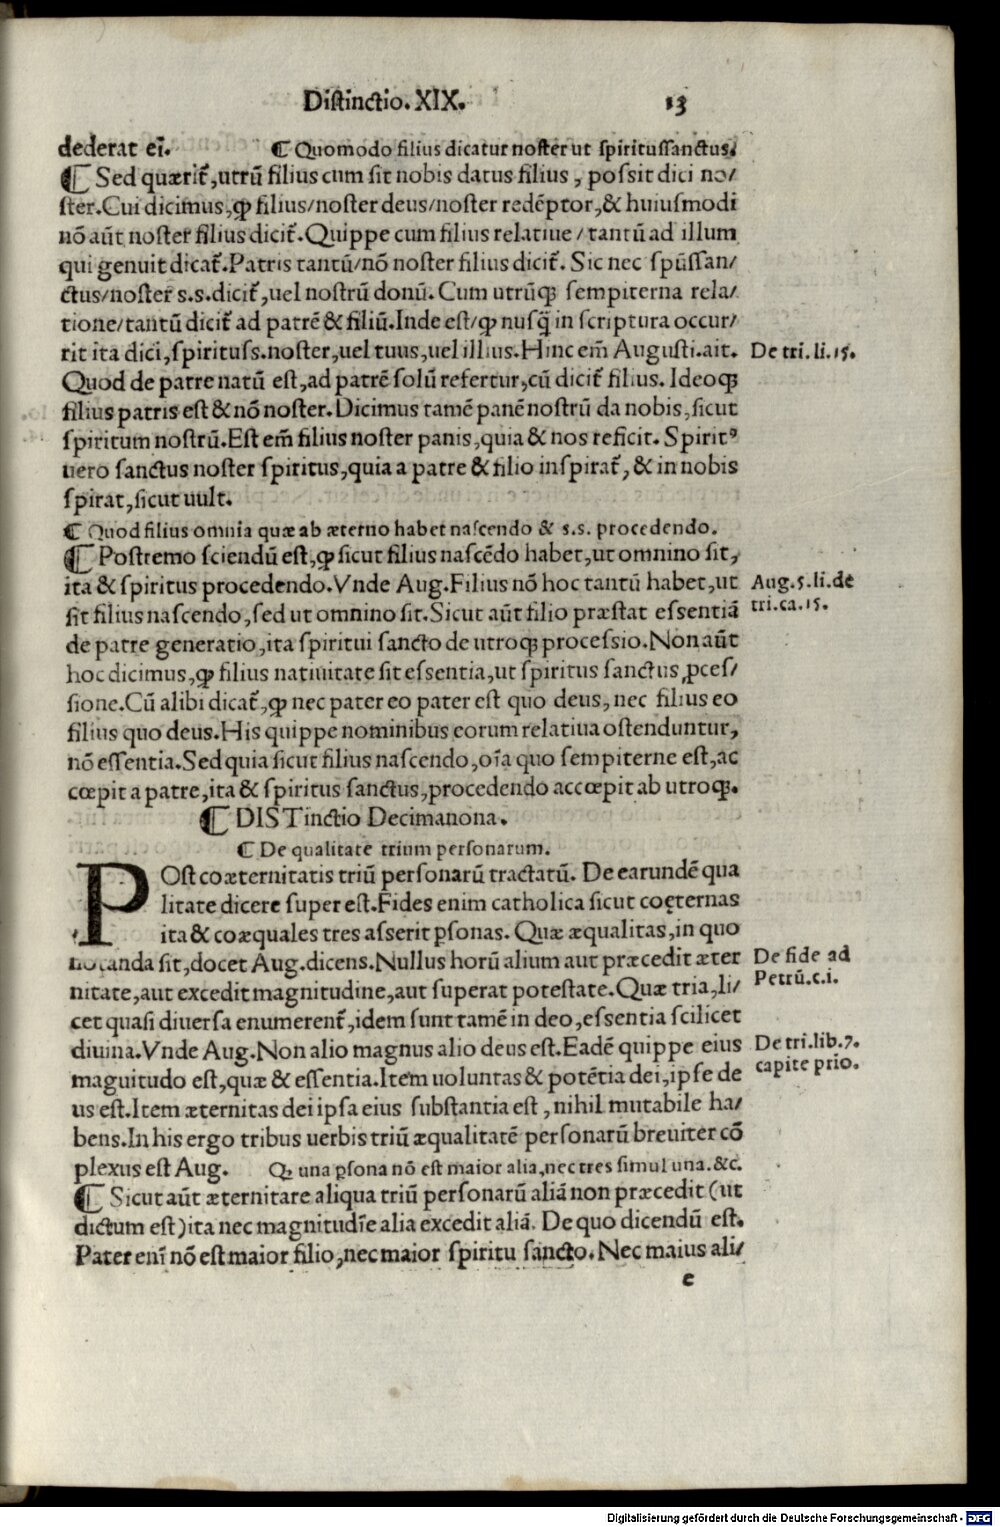 Distinctio. XIX. 13
dederat eĩ. ¶ Quomodo filius dicatur noster ut spiritussanctus.
¶ Sed quærit̃, utrũ filius cum sit nobis datus filius, possit dici no/
ster. Cui dicimus, ꝙ filius/noster deus/noster redẽptor, & huiusmodi
nõ aũt noster filius dicit̃. Quippe cum filius relatiue/tantũ ad illum
qui genuit dicat̃. Patris tantũ/nõ noster filius dicit̃. Sic nec spũssan/
ctus/noster s.s. dicit̃, uel nostrũ donũ. Cum utrũqꝫ sempiterna rela/
tione/tantũ dicit̃ ad patrẽ & filiũ. Inde est/ꝙ nusq̃ in scriptura occur/
rit ita dici, spirituss. noster, uel tuus, uel illius. Hinc em̃ Augusti. ait. De tri. li. 15.
Quod de patre natũ est, ad patrẽ solũ refertur, cũ dicit̃ filius. Ideoqꝫ
filius patris est & nõ noster. Dicimus tamẽ panẽ nostrũ da nobis, sicut
spiritum nostrũ. Est em̃ filius noster panis, quia & nos reficit. Spiritꝰ
uero sanctus noster spiritus, quia a patre & filio inspirat̃, & in nobis
spirat, sicut uult.
¶ Quod filius omnia quæ ab æterno habet nascendo & s.s. procedendo.
¶ Postremo sciendũ est, ꝙ sicut filius nascẽdo habet, ut omnino sit,
ita & spiritus procedendo. Vnde Aug. Filius nõ hoc tantũ habet, ut Aug. 5. li. de
sit filius nascendo, sed ut omnino sit. Sicut aũt filio præstat essentiã tri. ca. 15.
de patre generatio, ita spiritui sancto de utroqꝫ processio. Non aũt
hoc dicimus, ꝙ filius natiuitate sit essentia, ut spiritus sanctus ꝓces/
sione. Cũ alibi dicat̃, ꝙ nec pater eo pater est quo deus, nec filius eo
filius quo deus. His quippe nominibus eorum relatiua ostenduntur,
nõ essentia. Sed quia sicut filius nascendo, oĩa quo sempiterne est, ac
cœpit a patre, ita & spiritus sanctus, procedendo accœpit ab utroqꝫ.
¶ DISTinctio Decimanona.
¶ De qualitate trium personarum.
POst coæternitatis triũ personarũ tractatũ. De earundẽ qua
litate dicere super est. Fides enim catholica sicut coęternas
ita & coæquales tres asserit ꝑsonas. Quæ æqualitas, in quo
notanda sit, docet Aug. dicens. Nullus horũ alium aut præcedit æter De fide ad
nitate, aut excedit magnitudine, aut superat potestate. Quæ tria, li/ Petrũ. c. i.
cet quasi diuersa enumerent̃, idem sunt tamẽ in deo, essentia scilicet
diuina. Vnde Aug. Non alio magnus alio deus est. Eadẽ quippe eius De tri. lib. 7.
maguitudo est, quæ & essentia. Item uoluntas & potẽtia dei, ipse de capite prio.
us est. Item æternitas dei ipsa eius substantia est, nihil mutabile ha/
bens. In his ergo tribus uerbis triũ æqualitatẽ personarũ breuiter cõ
plexus est Aug. Qꝫ una ꝑsona nõ est maior alia, nec tres simul una. &c.
¶ Sicut aũt æternitare aliqua triũ personarũ aliã non præcedit (ut
dictum est) ita nec magnitudĩe alia excedit aliã. De quo dicendũ est.
Pater enĩ nõ est maior filio, nec maior spiritu sancto. Nec maius ali/
e
Digitalisierung gefördert durch die Deutsche Forschungsgemeinschaft - DFG